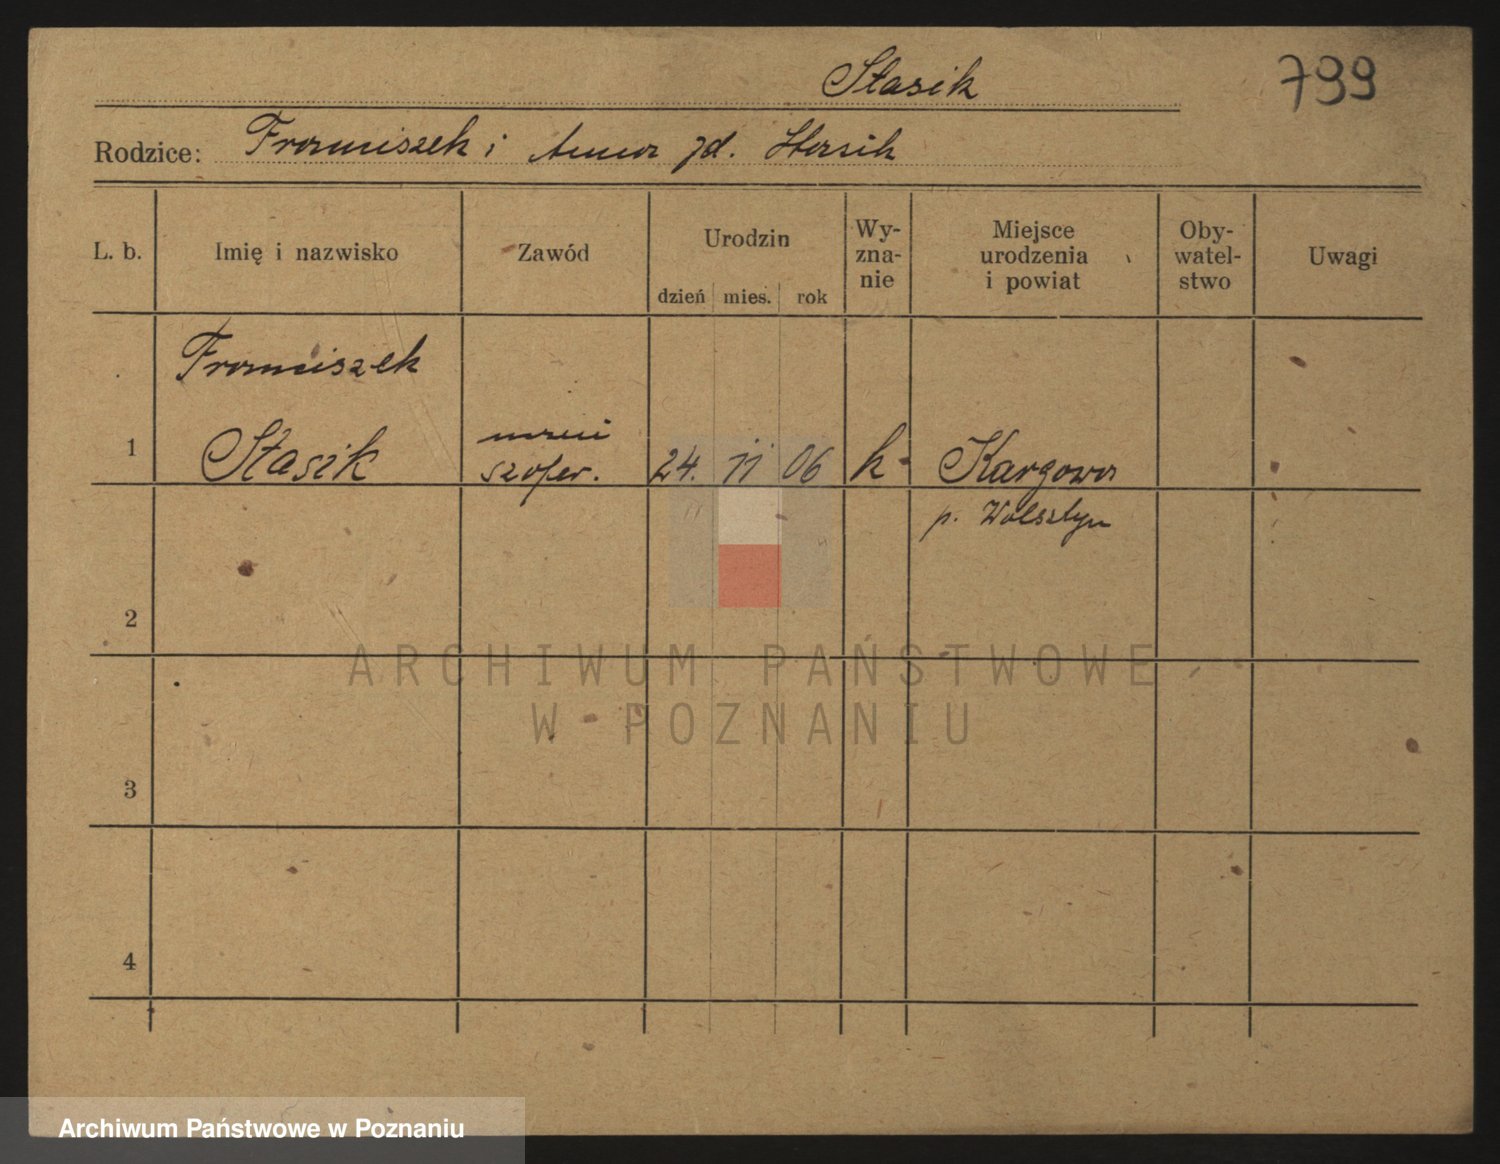 Stasik
799
Rodzice: Franciszek i Anna zd. Stasik
L. b.
Imię i nazwisko
Zawód
Urodzin
dzień mies. rok
Wy-
zna-
nie
Miejsce
urodzenia
i powiat
Oby-
watel-
stwo
Uwagi
Franciszek
1 Stasik szofer. 24. 11 06 k Kargowa
p. Wolsztyn
2
3
4
ARCHIWUM PAŃSTWOWE
W POZNANIU
Archiwum Państwowe w Poznaniu